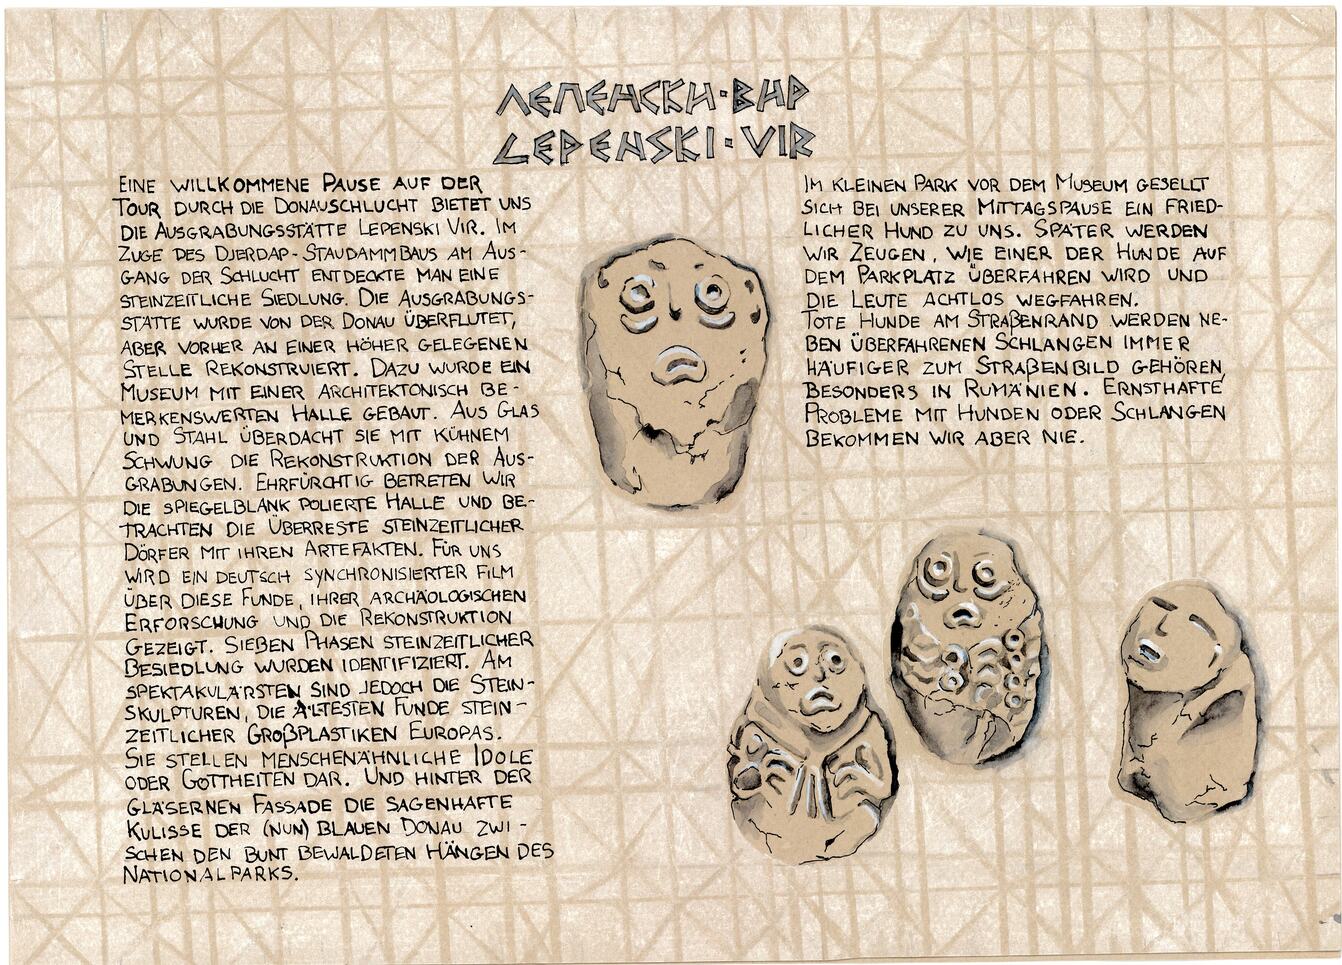 ЛЕПЕНСКИ·ВИР
LEPENSKI·VIR
EINE WILLKOMMENE PAUSE AUF DER
TOUR DURCH DIE DONAUSCHLUCHT BIETET UNS
DIE AUSGRABUNGSSTÄTTE LEPENSKI VIR. IM
ZUGE DES DJERDAP-STAUDAMMBAUS AM AUS-
GANG DER SCHLUCHT ENTDECKTE MAN EINE
STEINZEITLICHE SIEDLUNG. DIE AUSGRABUNGS-
STÄTTE WURDE VON DER DONAU ÜBERFLUTET,
ABER VORHER AN EINER HÖHER GELEGENEN
STELLE REKONSTRUIERT. DAZU WURDE EIN
MUSEUM MIT EINER ARCHITEKTONISCH BE-
MERKENSWERTEN HALLE GEBAUT. AUS GLAS
UND STAHL ÜBERDACHT SIE MIT KÜHNEM
SCHWUNG DIE REKONSTRUKTION DER AUS-
GRABUNGEN. EHRFÜRCHTIG BETRETEN WIR
DIE SPIEGELBLANK POLIERTE HALLE UND BE-
TRACHTEN DIE ÜBERRESTE STEINZEITLICHER
DÖRFER MIT IHREN ARTEFAKTEN. FÜR UNS
WIRD EIN DEUTSCH SYNCHRONISIERTER FILM
ÜBER DIESE FUNDE, IHRER ARCHÄOLOGISCHEN
ERFORSCHUNG UND DIE REKONSTRUKTION
GEZEIGT. SIEBEN PHASEN STEINZEITLICHER
BESIEDLUNG WURDEN IDENTIFIZIERT. AM
SPEKTAKULÄRSTEN SIND JEDOCH DIE STEIN-
SKULPTUREN, DIE ÄLTESTEN FUNDE STEIN-
ZEITLICHER GROßPLASTIKEN EUROPAS.
SIE STELLEN MENSCHENÄHNLICHE IDOLE
ODER GOTTHEITEN DAR. UND HINTER DER
GLÄSERNEN FASSADE DIE SAGENHAFTE
KULISSE DER (NUN) BLAUEN DONAU ZWI-
SCHEN DEN BUNT BEWALDETEN HÄNGEN DES
NATIONALPARKS.
IM KLEINEN PARK VOR DEM MUSEUM GESELLT
SICH BEI UNSERER MITTAGSPAUSE EIN FRIED-
LICHER HUND ZU UNS. SPÄTER WERDEN
WIR ZEUGEN, WIE EINER DER HUNDE AUF
DEM PARKPLATZ ÜBERFAHREN WIRD UND
DIE LEUTE ACHTLOS WEGFAHREN.
TOTE HUNDE AM STRAßENRAND WERDEN NE-
BEN ÜBERFAHRENEN SCHLANGEN IMMER
HÄUFIGER ZUM STRAßENBILD GEHÖREN,
BESONDERS IN RUMÄNIEN. ERNSTHAFTE
PROBLEME MIT HUNDEN ODER SCHLANGEN
BEKOMMEN WIR ABER NIE.